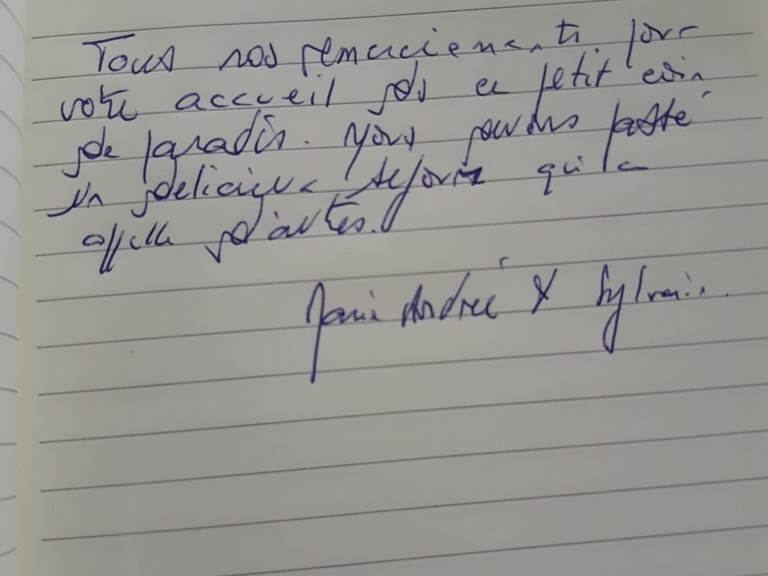 Tous nos remerciements pour
votre accueil ds ce petit coin
de paradis. Nous avons passé
un délicieux séjour qui en
appelle d'autres.
Marie Andrée & Sylvain.